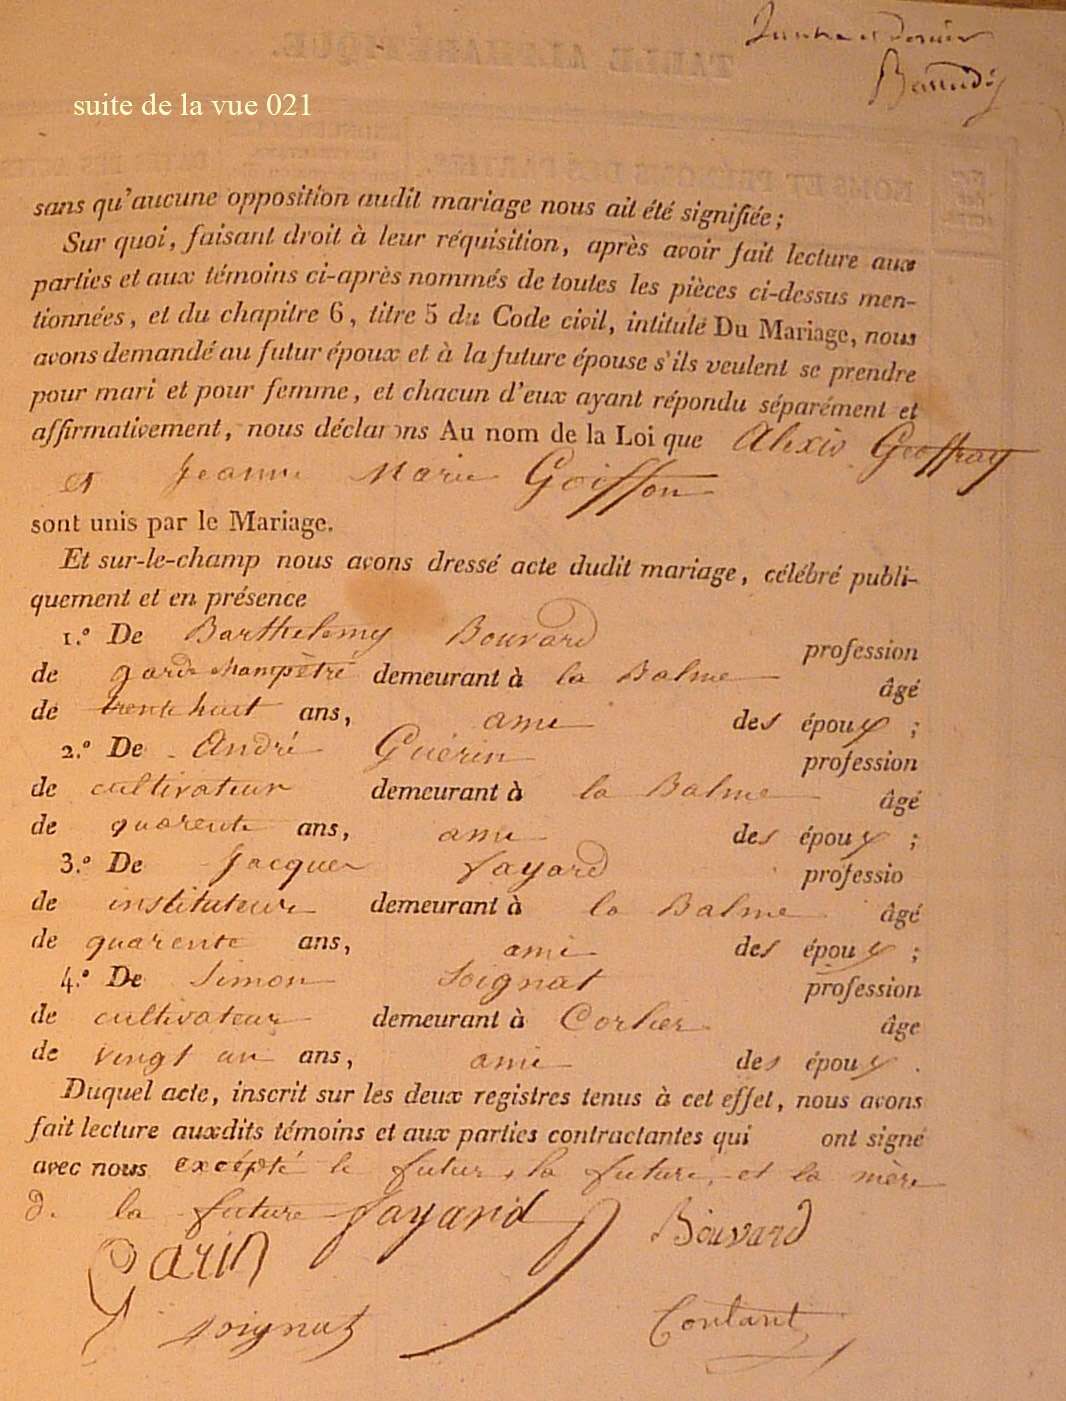 et dernier
suite de la vue 021
TABLE ALPHABÉTIQUE.
NOMS ET PRÉNOMS DES PARTIES.
DATES DES ACTES
sans qu'aucune opposition audit mariage nous ait été signifiée ;
Sur quoi, faisant droit à leur réquisition, après avoir fait lecture aux
parties et aux témoins ci-après nommés de toutes les pièces ci-dessus men-
tionnées, et du chapitre 6, titre 5 du Code civil, intitulé Du Mariage, nous
avons demandé au futur époux et à la future épouse s'ils veulent se prendre
pour mari et pour femme, et chacun d'eux ayant répondu séparément et
affirmativement, nous déclarons Au nom de la Loi que Alexis Geoffray
et Jeanne Marie Goiffon
sont unis par le Mariage.
Et sur-le-champ nous avons dressé acte dudit mariage, célébré publi-
quement et en présence
1.° De Barthelemy Bouvard profession
de garde champêtre demeurant à la Balme âgé
de trente huit ans, ami des époux ;
2.° De André Guérin profession
de cultivateur demeurant à la Balme âgé
de quarente ans, ami des époux ;
3.° De Jacques Fayard professio
de instituteur demeurant à la Balme âgé
de quarente ans, ami des époux ;
4.° De Simon Soignat profession
de cultivateur demeurant à Corlier âge
de vingt un ans, ami des époux .
Duquel acte, inscrit sur les deux registres tenus à cet effet, nous avons
fait lecture auxdits témoins et aux parties contractantes qui ont signé
avec nous excépté le futur, la future, et la mère
d. la future Fayard Bouvard
Garin
Soignat Contant